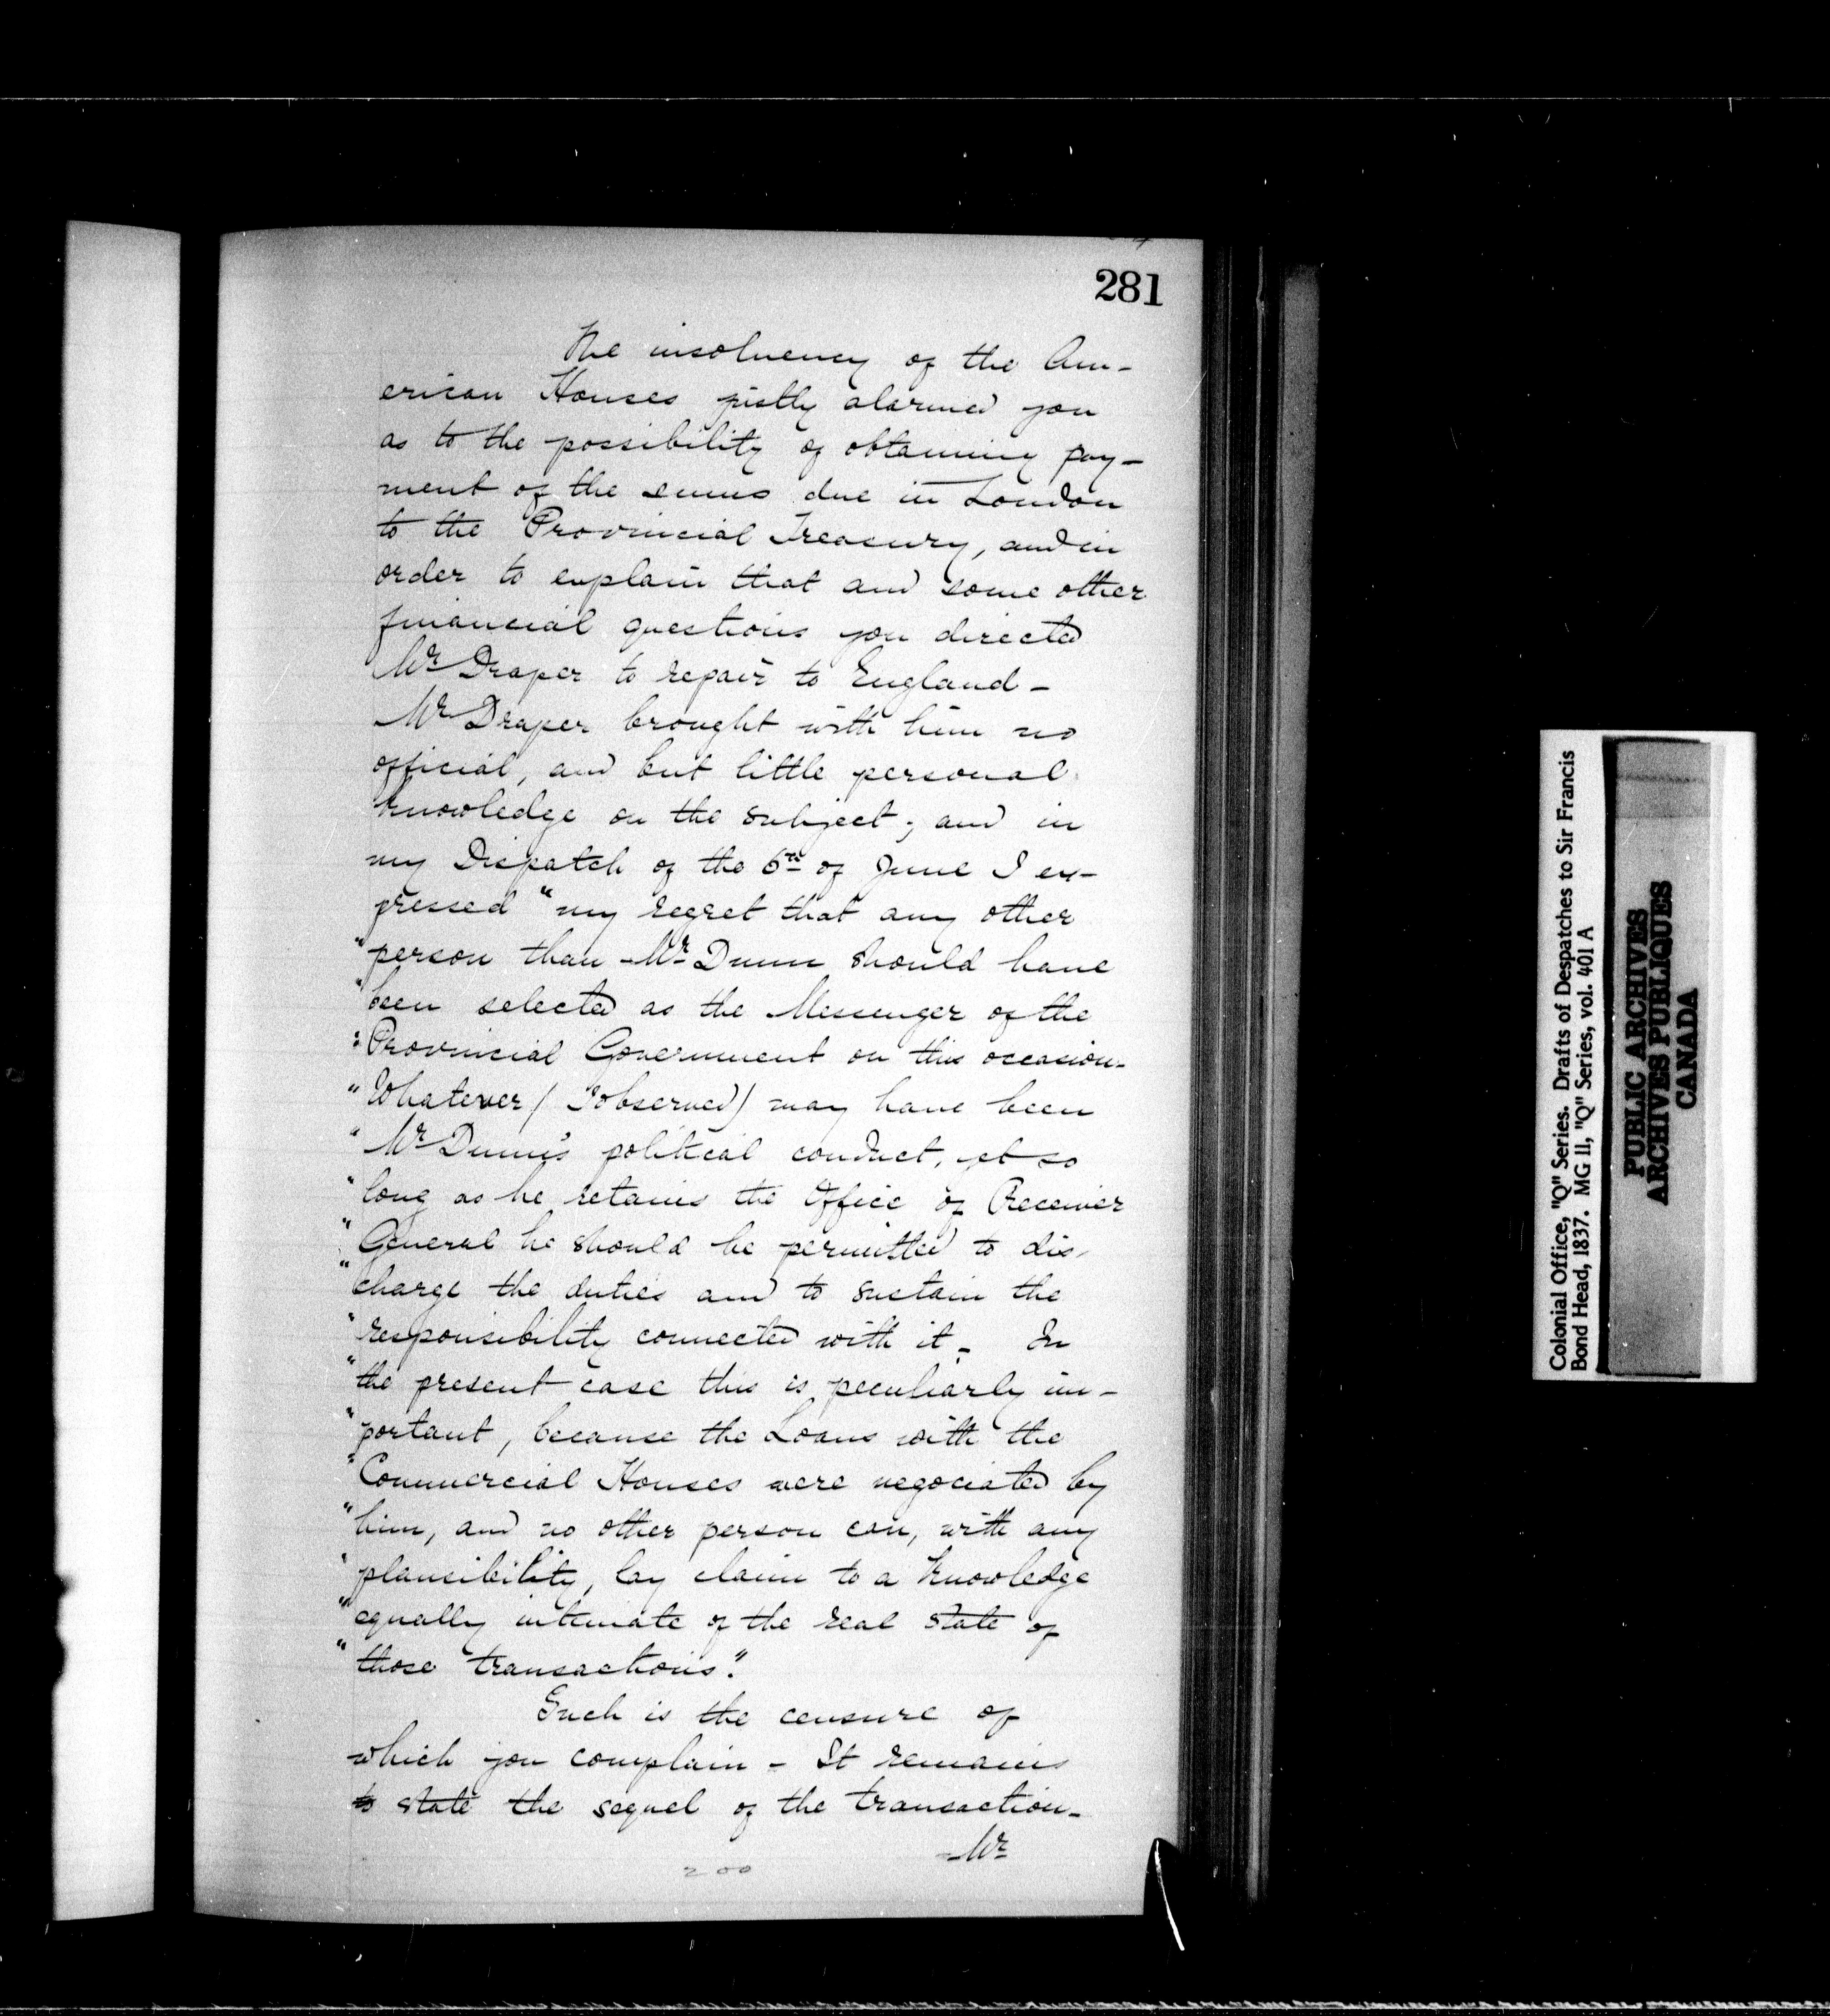 281
The insolvency of the Am-
erican Houses justly alarmed you
as to the possibility of obtaining pay-
ment of the sums due in London
to the Provincial Treasury, and in
order to explain that and some other
financial questions you directed
Mr Draper to repair to England -
Mr Draper brought with him no
official, and but little personal
knowledge on the subject; and in
my Dispatch of the 6th of June I ex-
pressed "my regret that any other
"person than Mr Dunn should have
"been selected as the Messenger of the
"Provincial Government on this occasion.
"Whatever (I observed) may have been
"Mr Dunn's political conduct, yet so
"long as he retains the Office of Receiver
"General he should be permitted to dis-
"charge the duties and to sustain the
"responsibility connected with it - In
"the present case this is peculiarly im-
"portant, because the Loans with the
"Commercial Houses were negociated by
"him, and no other person can, with any
"plausibility, lay claim to a knowledge
"equally intimate of the real state of
"those transactions."
Such is the censure of
which you complain - It remains
to state the sequel of the transaction -
Mr
200
Colonial Office, "Q" Series. Drafts of Despatches to Sir Francis
Bond Head, 1837. MG 11, "Q" Series, vol. 401 A
PUBLIC ARCHIVES
ARCHIVES PUBLIQUES
CANADA